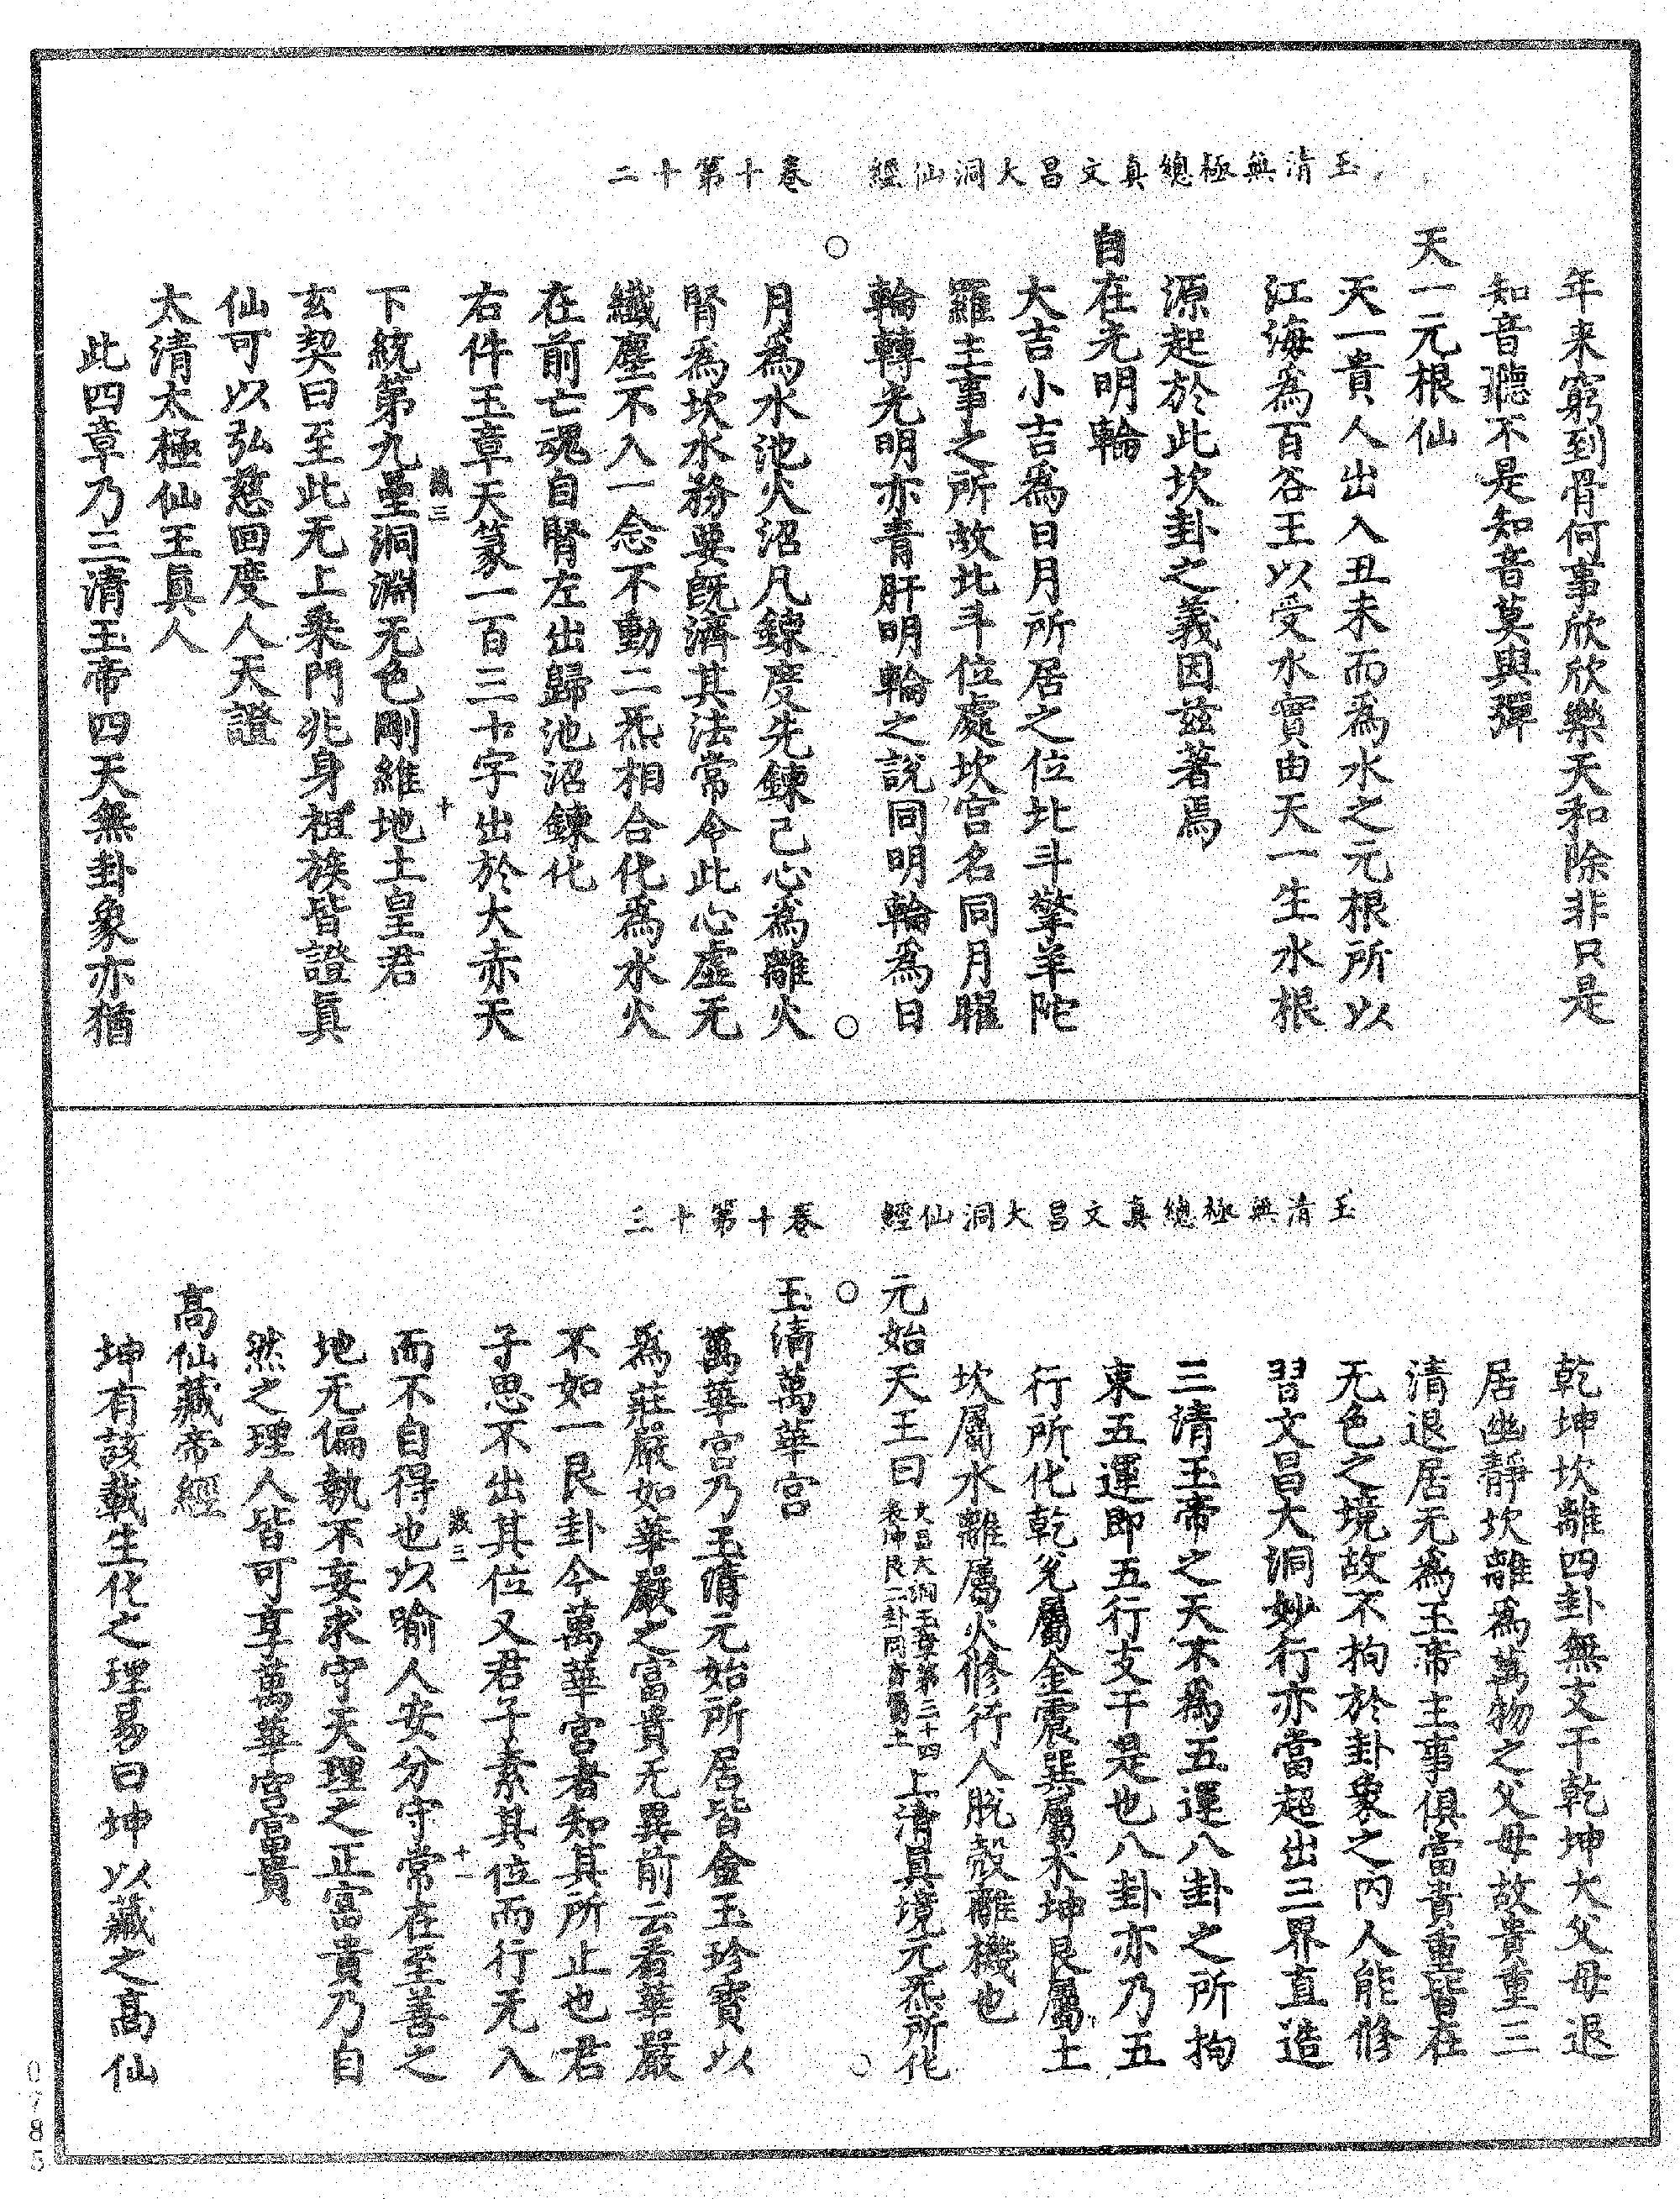 玉清無極總真文昌大洞仙經　卷十第十二
年来窮到骨何事欣欣樂天和除非只是
知音聽不是知音莫與彈
天一元根仙
天一貴人出入丑未而爲水之元根所以
江海為百谷王以受水實由天一生水根
源起於此坎卦之義因兹著焉
自在光明輪
大吉小吉爲日月所居之位北斗擎羊陀
羅主事之所故北斗位處坎宫名同月曜
輪轉光明亦青肝明輪之說同明輪爲日
月爲水池火沼凡鍊度先鍊己心爲離火
腎爲坎水務要旣濟其法常令此心虛无
纖塵不入一念不動二炁相合化爲水火
在前亡魂自腎左出歸池沼鍊化
右件玉章天篆一百三十字出於大赤天
下統第九壘洞淵无色剛維地土皇君
歲三　十
玄契曰至此无上乘門兆身祖族皆證眞
仙可以弘慈回度人天證
太清太極仙王眞人
此四章乃三清玉帝四天無卦象亦猶
玉清無極總真文昌大洞仙經　卷十第十三
乾坤坎離四卦無支干乾坤大父母退
居幽靜坎離爲萬物之父母故貴重三
清退居无為玉帝主事俱當貴重皆在
无色之境故不拘於卦象之内人能修
習文昌大洞妙行亦當超出三界直造
三清玉帝之天不爲五運八卦之所拘
束五運即五行支干是也八卦亦乃五
行所化乾兌屬金震巽屬木坤艮屬土
坎屬水離屬火修行人脫殼離機也
元始天王曰文昌大洞玉章第三十四表坤艮二卦同音屬土上清眞境元炁所化
玉清萬華宫
萬華宫乃玉清元始所居皆金玉珍寶以
爲莊嚴如華嚴之富貴无異前云看華嚴
不如一艮卦今萬華宫者知其所止也君
子思不出其位又君子素其位而行无入
而不自得也以喻人安分守常在至善之
歲三　十一
地无偏執不妄求守天理之正富貴乃自
然之理人皆可享萬華宫富貴
高仙藏帝經
坤有該載生化之理易曰坤以藏之高仙
0785